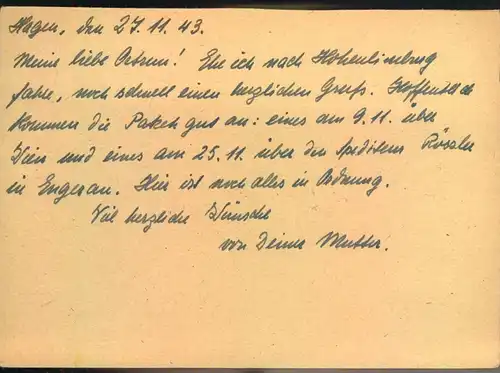 Hagen, den 27.11.43.
Meine liebe ! Ehe ich nach Hohenlimburg
fahre, noch schnell einen herzlichen Gruß. Hoffentlich
kommen die Pakete gut an: eines am 9.11. über
Wien und eines am 25.11. über den Spediteur Rössler
in Engerau. Hier ist noch alles in Ordnung.
Viel herzliche Wünsche
von Deiner Mutter.